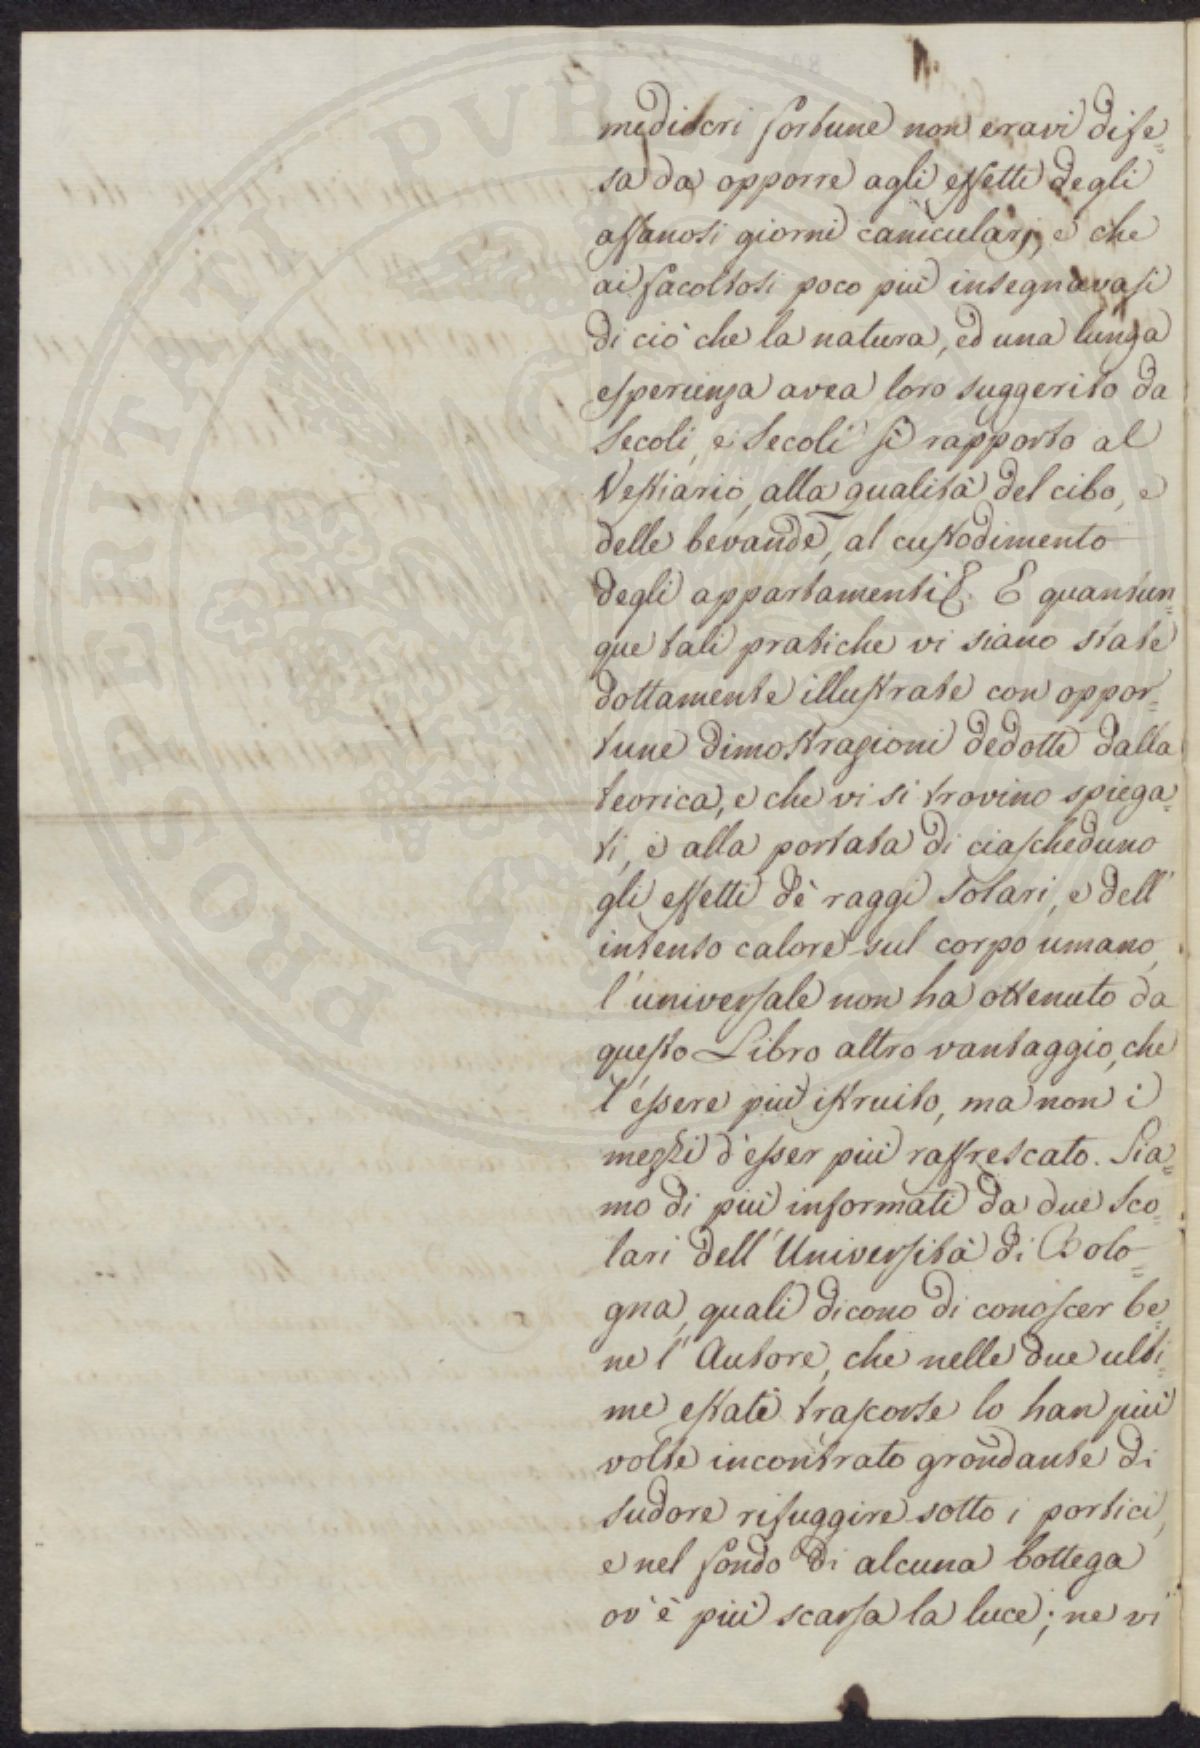 mediocri fortune non eravi dife=
sa da opporre agli effetti degli
affanosi giorni canicularj, e che
ai facoltosi poco più insegnavasi
di ciò che la natura, ed una lunga
esperienza avea loro suggerito da
secoli, e secoli sì rapporto al
Vestiario, alla qualità del cibo, e
delle bevande, al custodimento
degli appartamenti &. E quantun=
que tali pratiche vi siano state
dottamente illustrate con oppor=
tune dimostrazioni dedotte dalla
teorica, e che vi si trovino spiega=
ti, e alla portata di ciascheduno
gli effetti dè raggi Solari, e dell'
intenso calore sul corpo umano,
l'universale non ha ottenuto da
questo Libro altro vantaggio, che
l'essere più istruito, ma non i
mezzi d'esser più raffrescato. Sia=
mo di più informati da due Sco=
lari dell'Università di Bolo=
gna, quali dicono di conoscer be=
ne l'Autore, che nelle due ulti=
me estati trascorse lo han più
volte incontrato grondante di
sudore rifuggire sotto i portici,
e nel fondo di alcuna bottega
ov'è più scarsa la luce; ne vi
PROSPERITATI PVBLICAE